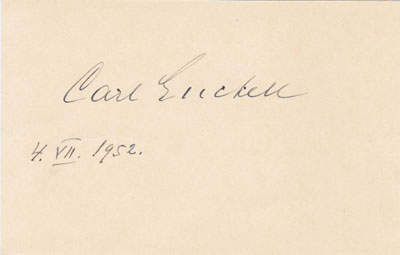 Carl Enckell
4. VII. 1952.